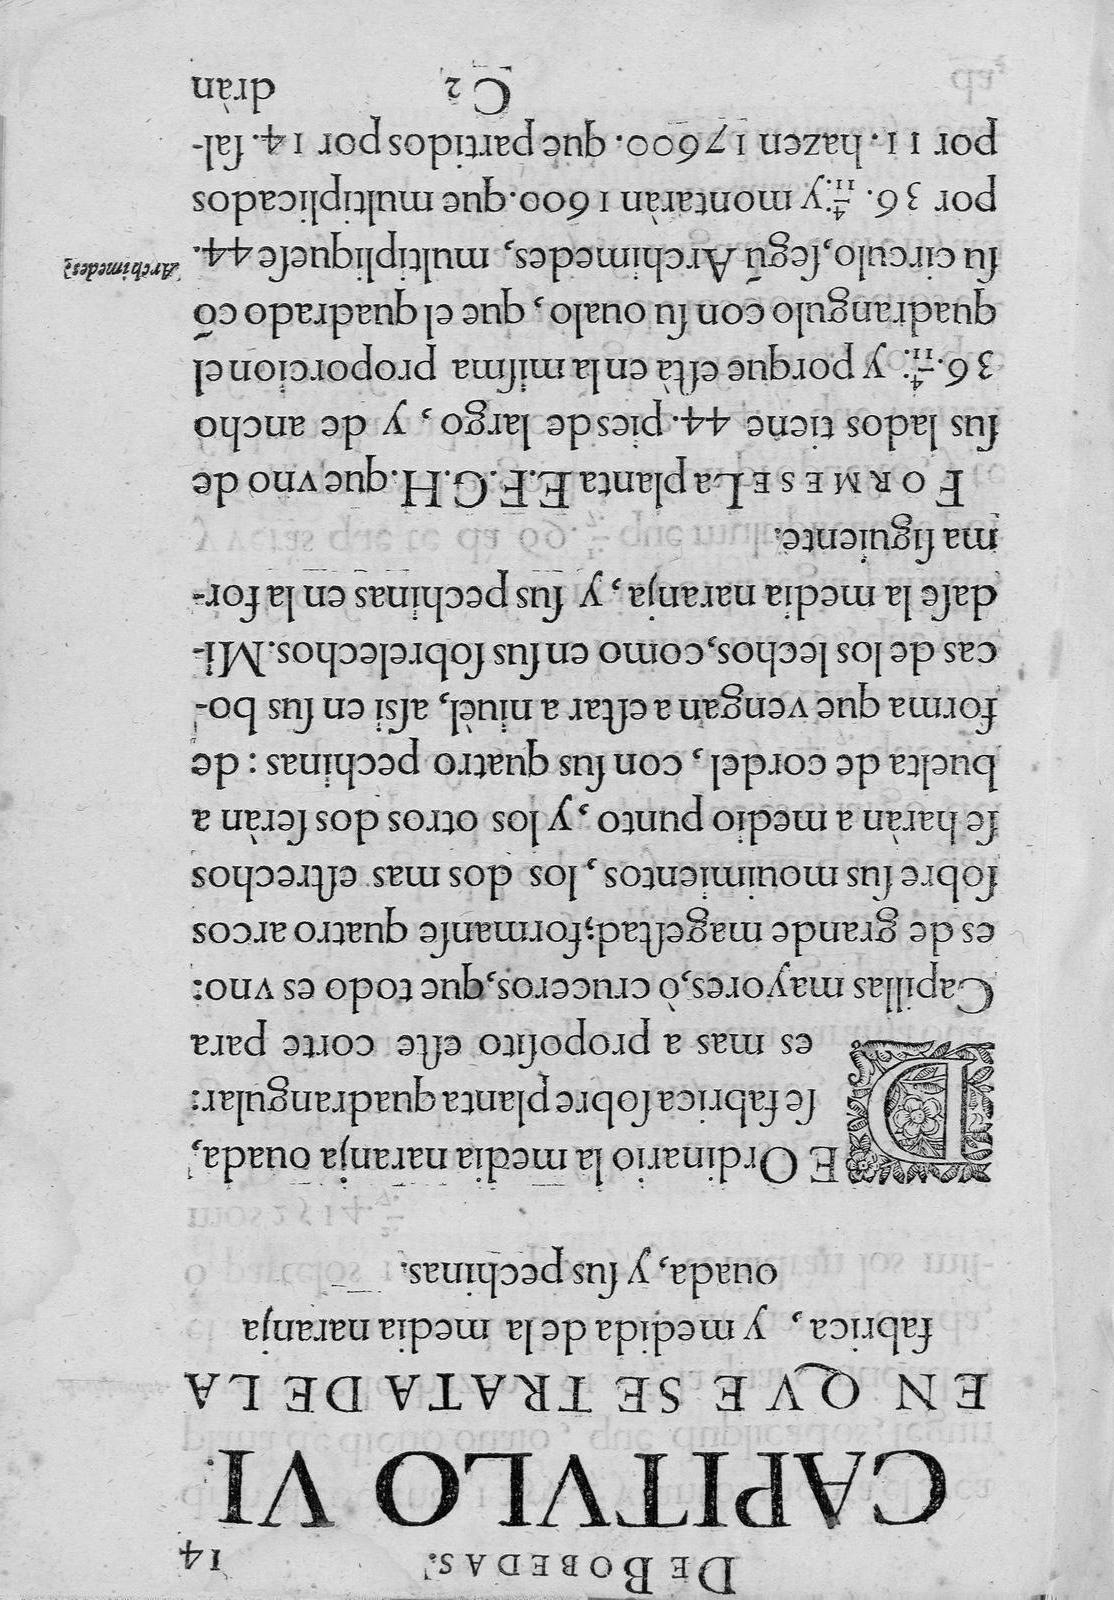 DE BOBEDAS. 14
CAPITVLO VI.
EN QVE SE TRATA DE LA
fabrica, y medida de la media naranja
ouada, y ſus pechinas.
DE Ordinario la media naranja ouada,
ſe fabrica ſobre planta quadrangular:
es mas a propoſito eſte corte para
Capillas mayores, ò cruceros, que todo es vno:
es de grande mageſtad; formanſe quatro arcos
ſobre ſus mouimientos, los dos mas eſtrechos
ſe haràn a medio punto, y los otros dos ſeràn a
buelta de cordel, con ſus quatro pechinas: de
forma que vengan a eſtar a niuèl, aſsi en ſus bo-
cas de los lechos, como en ſus ſobrelechos. Mi-
daſe la media naranja, y ſus pechinas en la for-
ma ſiguiente.
FORMESE La planta E.F.G.H. que vno de
ſus lados tiene 44. pies de largo, y de ancho
36. 4/11. y porque eſtà en la miſma proporcion el
quadrangulo con ſu oualo, que el quadrado cõ
ſu circulo, ſegũ Archimedes, multipliqueſe 44.
Archimedes.
por 36. 4/11. y montaràn 1600. que multiplicados
por 11. hazen 17600. que partidos por 14. ſal-
C 2 dràn